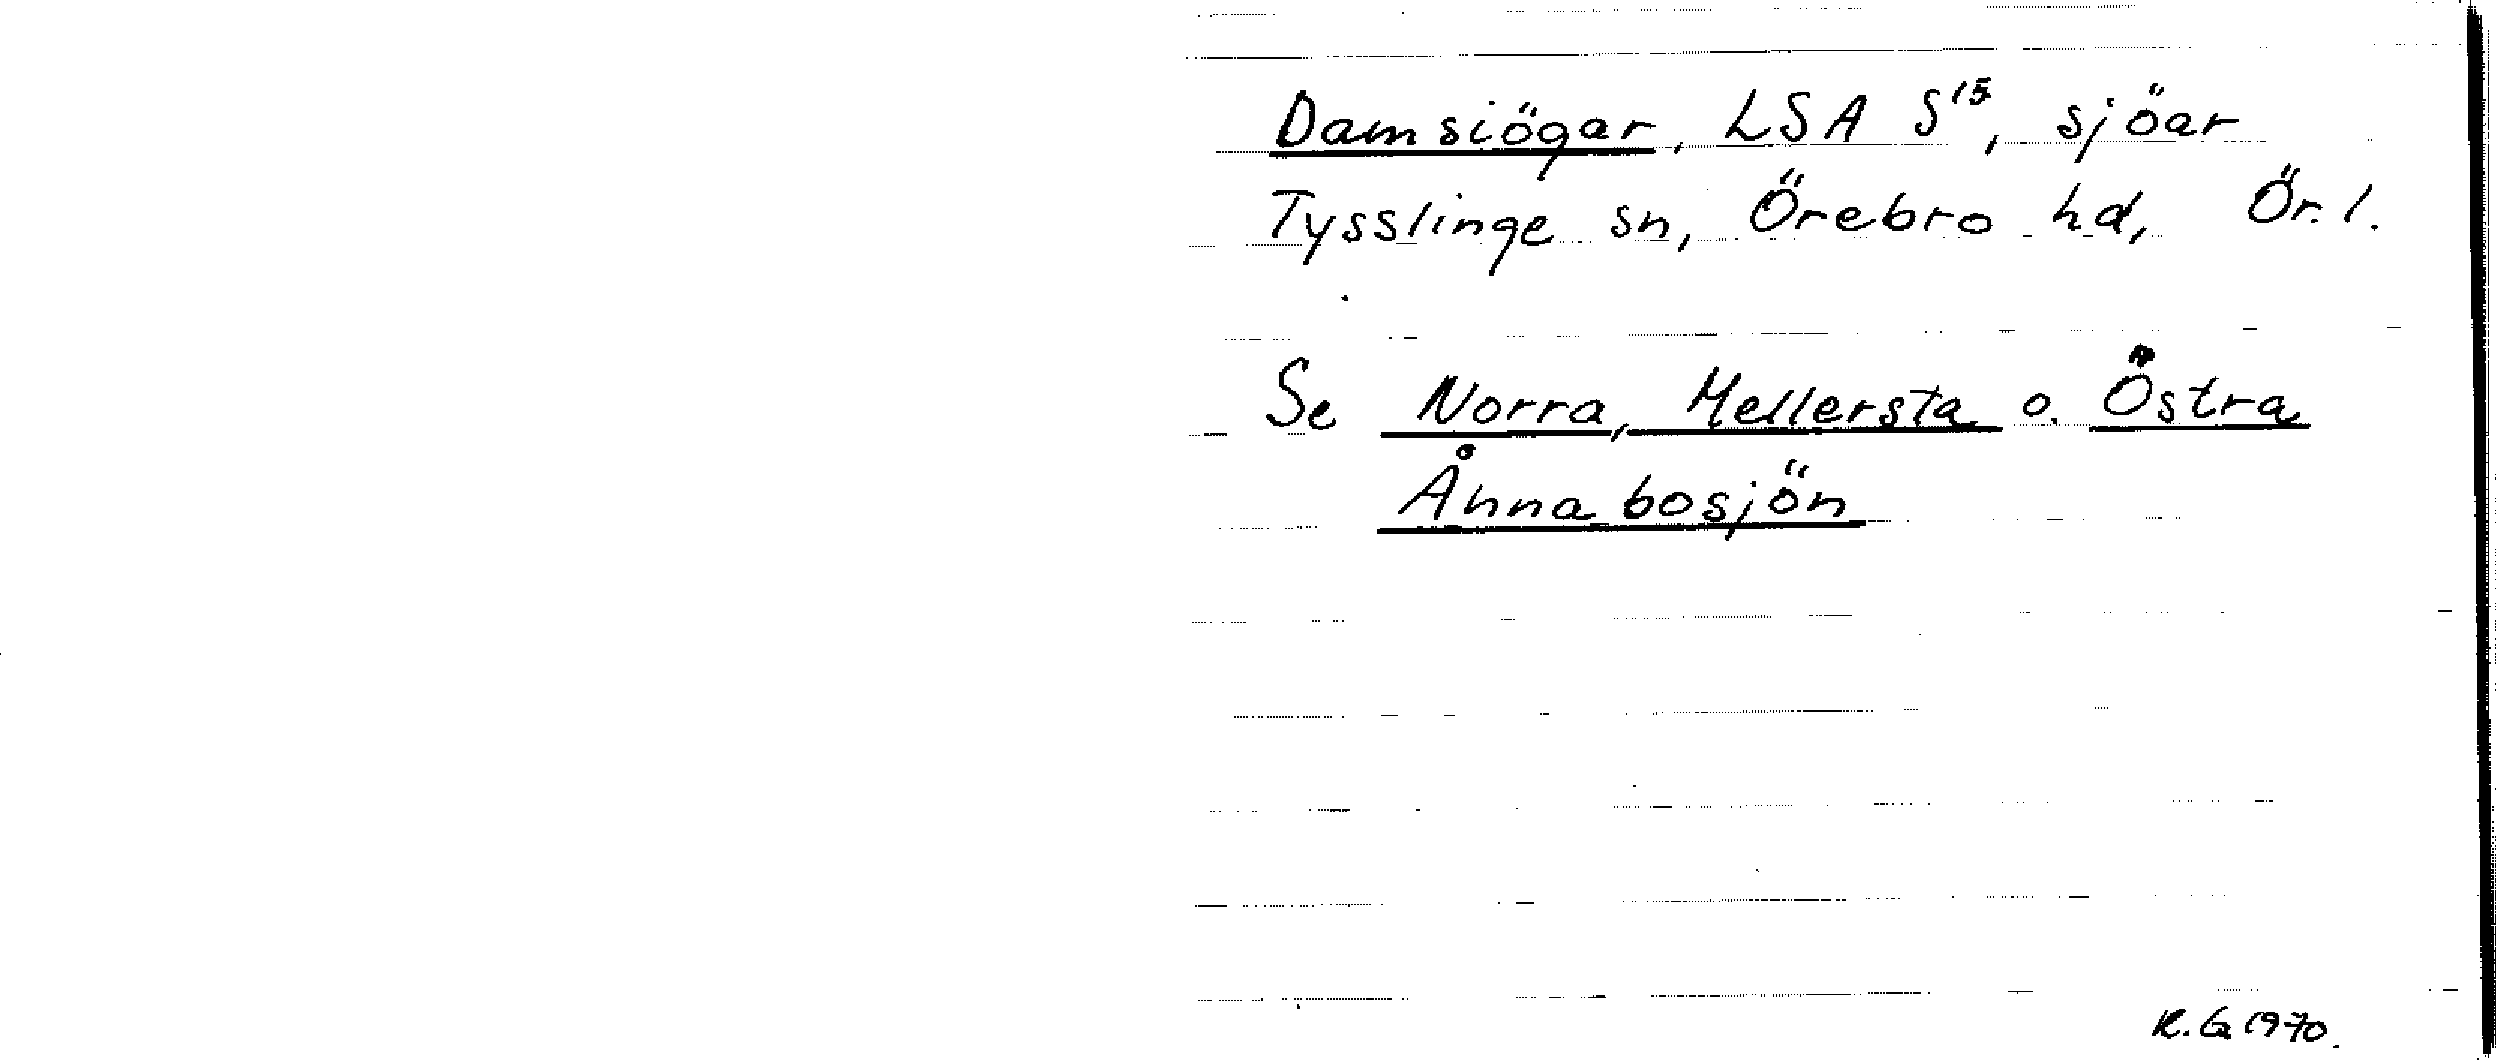 Damsiögar, LSA S¹⁵, sjöar
Tysslinge sn, Örebro hd, Ör. l.
Se Norra, Mellersta o. Östra
Ånnabosjön
R. G 1970.